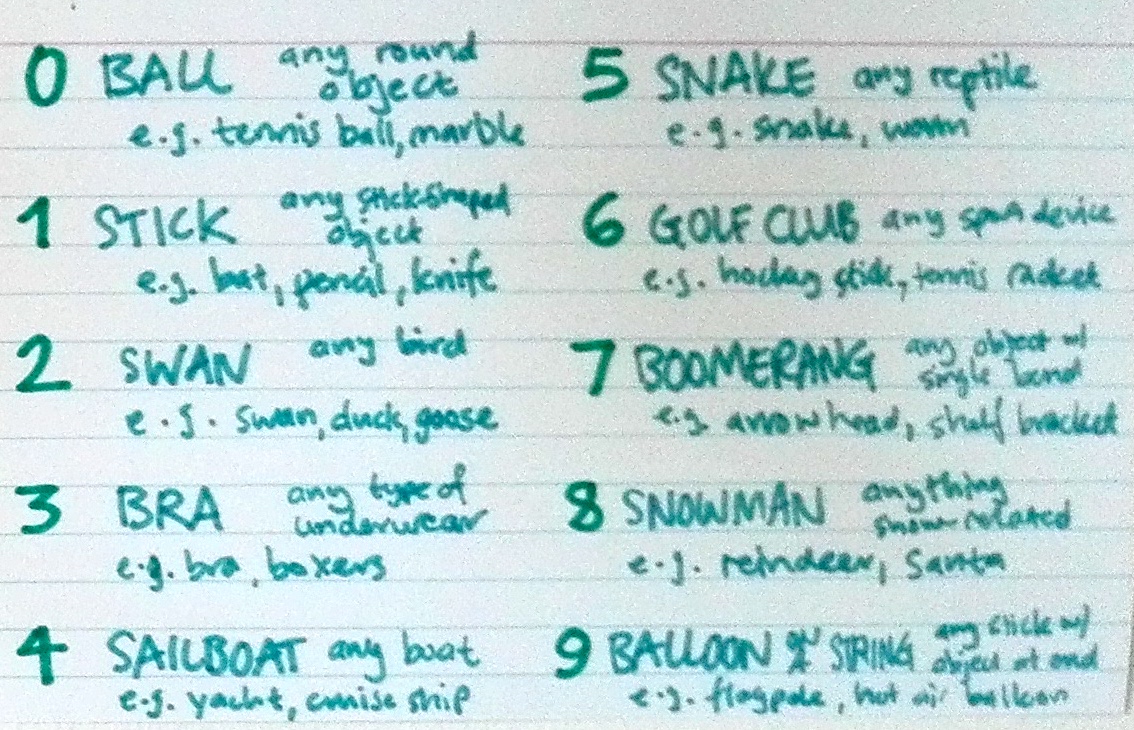 0 BALL any round
object
e.g. tennis ball, marble
1 STICK any stick-shaped
object
e.g. bat, pencil, knife
2 SWAN any bird
e.g. swan, duck, goose
3 BRA any type of
underwear
e.g. bra, boxers
4 SAILBOAT any boat
e.g. yacht, cruise ship
5 SNAKE any reptile
e.g. snake, worm
6 GOLF CLUB any sport device
e.g. hockey stick, tennis racket
7 BOOMERANG any object w/
single bend
e.g. arrowhead, shelf bracket
8 SNOWMAN anything
snow-related
e.g. reindeer, Santa
9 BALLOON ON A STRING any stick w/
object at end
e.g. flagpole, hot air balloon